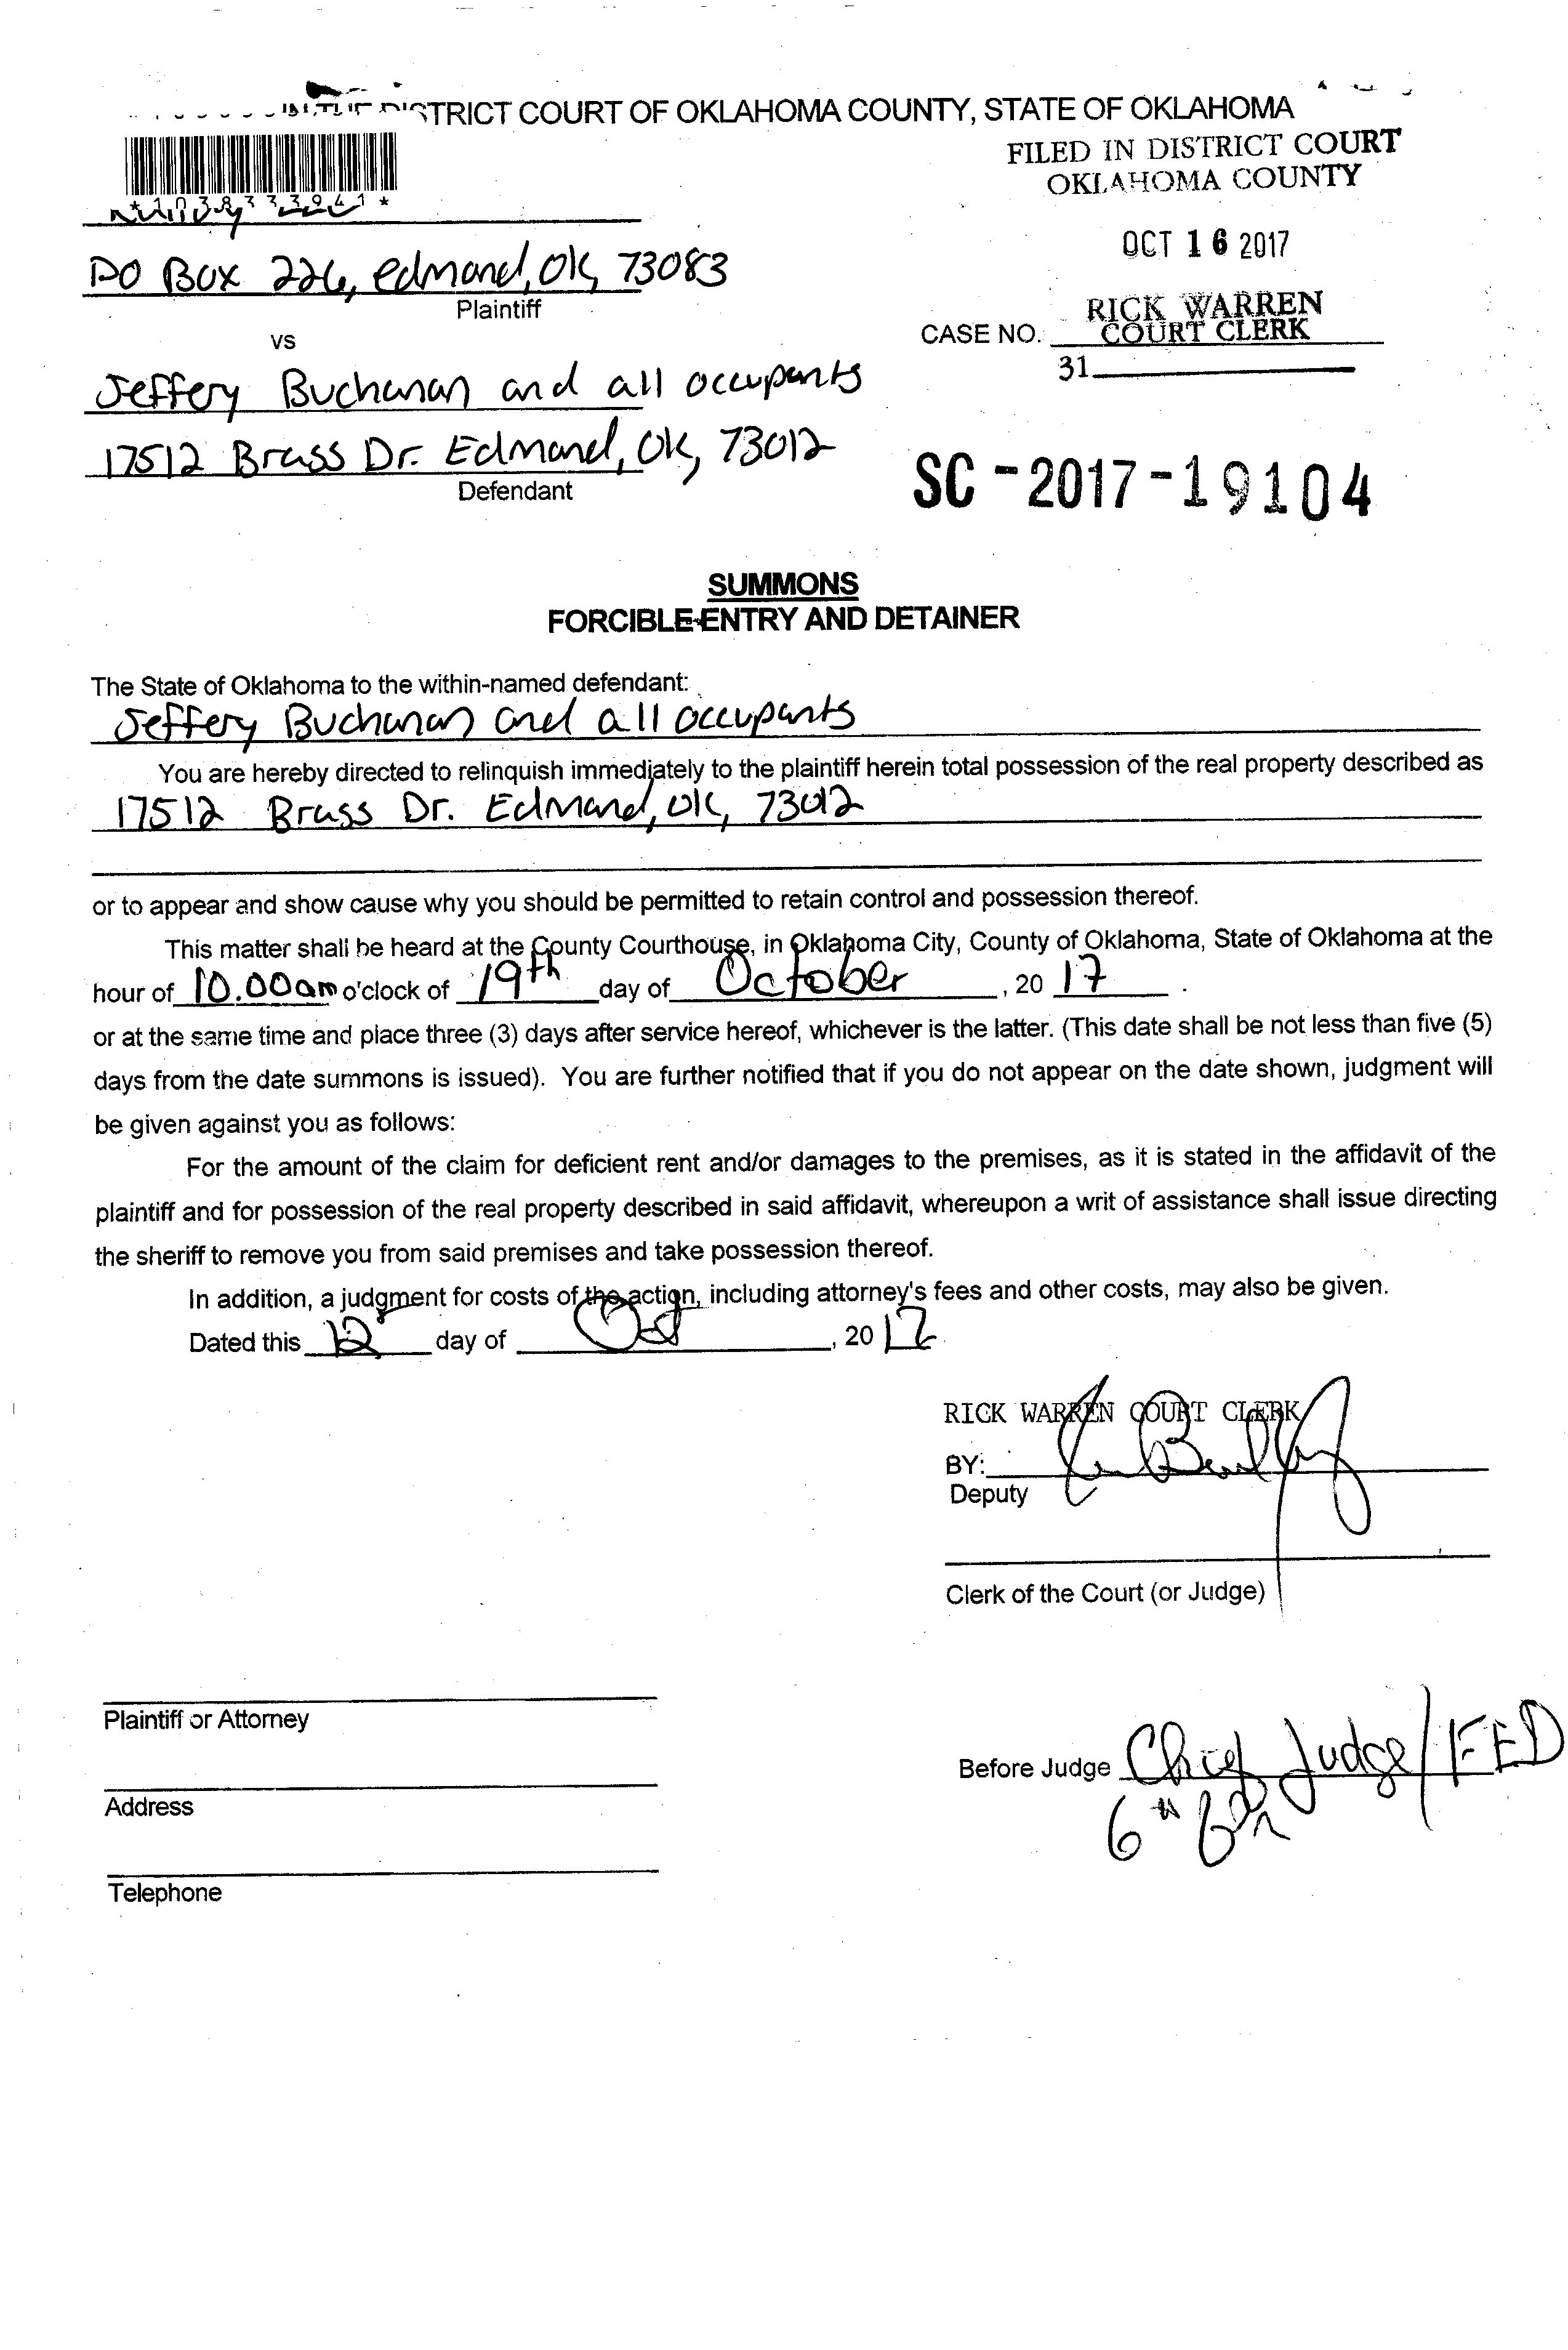 IN THE DISTRICT COURT OF OKLAHOMA COUNTY, STATE OF OKLAHOMA
FILED IN DISTRICT COURT
OKLAHOMA COUNTY
*1038333941*
OCT 16 2017
PO Box 226, edmond, OK, 73083
Plaintiff
RICK WARREN
CASE NO. COURT CLERK
vs
31
Jeffery Buchanan and all occupants
17512 Brass Dr. Edmond, OK, 73012
Defendant
SC-2017-19104
SUMMONS
FORCIBLE ENTRY AND DETAINER
The State of Oklahoma to the within-named defendant:
Jeffery Buchanan and all occupants
You are hereby directed to relinquish immediately to the plaintiff herein total possession of the real property described as
17512 Brass Dr. Edmond, OK, 73012
or to appear and show cause why you should be permitted to retain control and possession thereof.
This matter shall be heard at the County Courthouse, in Oklahoma City, County of Oklahoma, State of Oklahoma at the
hour of 10.00am o'clock of 19th day of October, 20 17.
or at the same time and place three (3) days after service hereof, whichever is the latter. (This date shall be not less than five (5)
days from the date summons is issued). You are further notified that if you do not appear on the date shown, judgment will
be given against you as follows:
For the amount of the claim for deficient rent and/or damages to the premises, as it is stated in the affidavit of the
plaintiff and for possession of the real property described in said affidavit, whereupon a writ of assistance shall issue directing
the sheriff to remove you from said premises and take possession thereof.
In addition, a judgment for costs of the action, including attorney's fees and other costs, may also be given.
Dated this 12 day of Oct, 20 17
RICK WARREN COURT CLERK
BY:
Deputy
Clerk of the Court (or Judge)
Plaintiff or Attorney
Before Judge Chief Judge/FED
Address
6th
Telephone